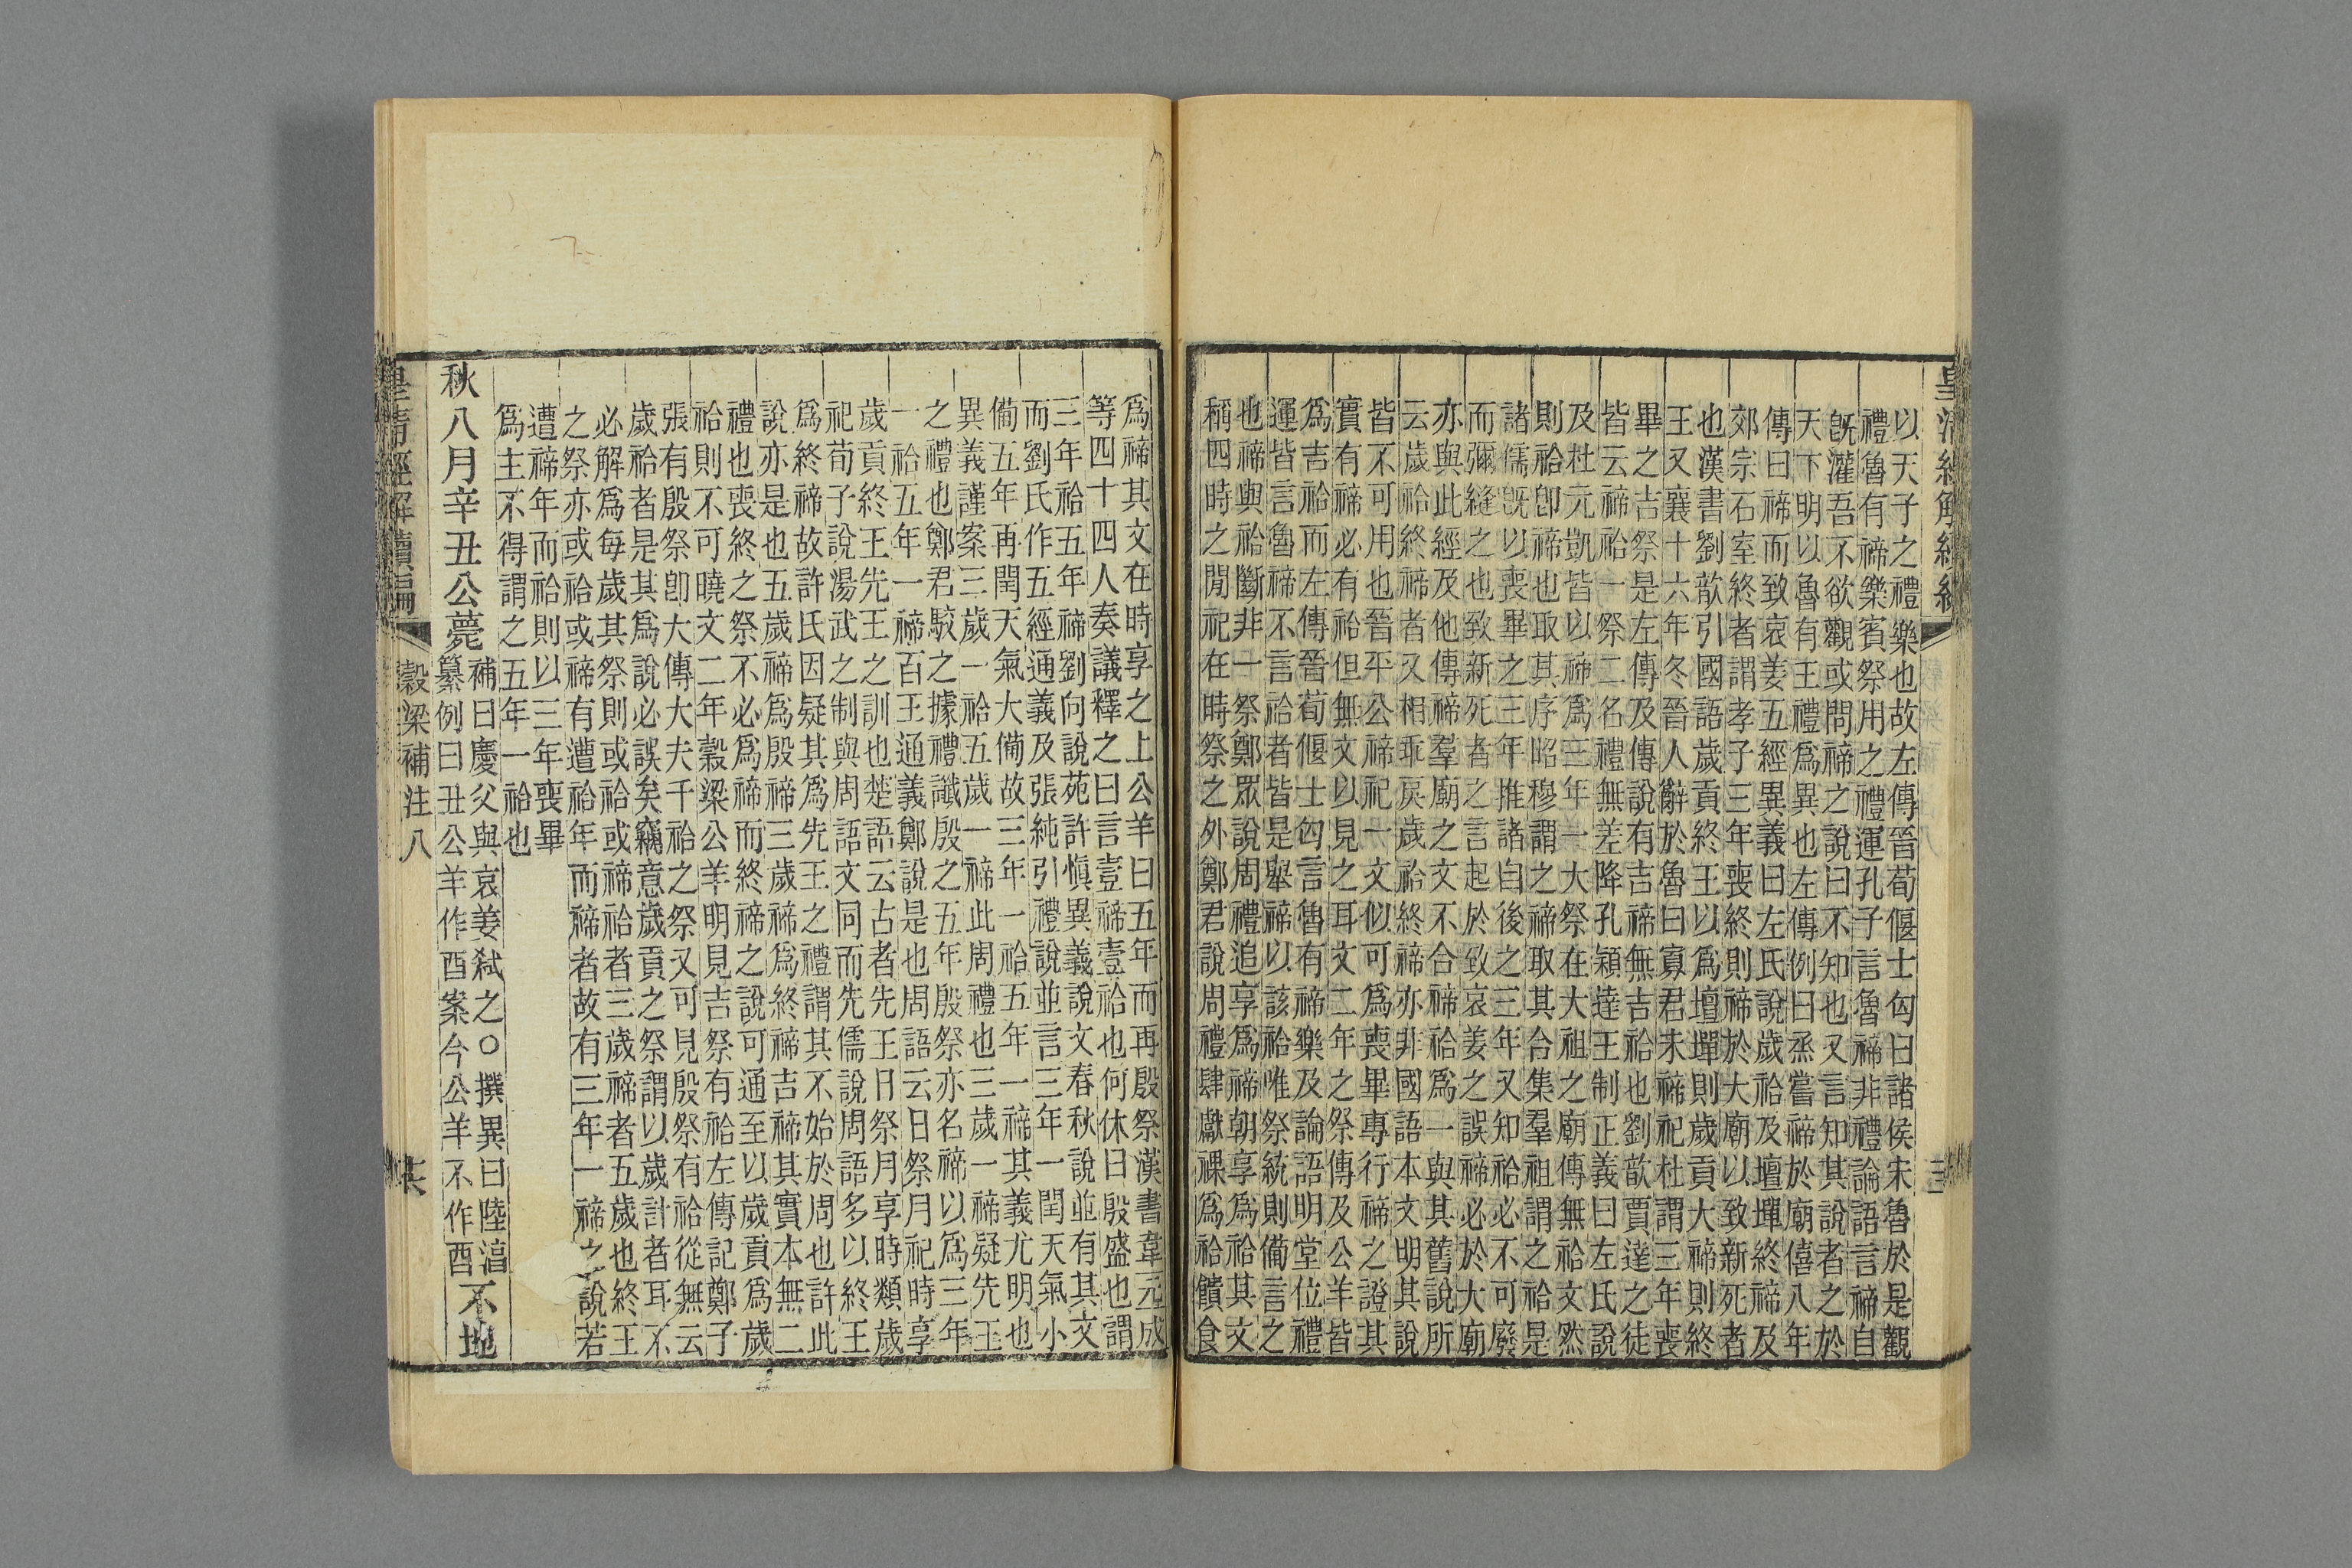 皇清經解續編
三
以天子之禮樂也故左傳晉荀偃士匄曰諸侯宋魯於是觀
禮魯有禘樂賓祭用之禮運孔子言魯禘非禮論語言禘自
旣灌吾不欲觀或問禘之說曰不知也又言知其說者之於
天下明以魯有王禮爲異也左傳例曰烝嘗禘於廟僖八年
傳曰禘而致哀姜五經異義曰左氏說歲祫及壇墠終禘及
郊宗石室終者謂孝子三年喪終則禘於大廟以致新死者
也漢書劉歆引國語歲貢終王以爲壇墠則歲貢大禘則終
王又襄十六年冬晉人辭於魯曰寡君未禘祀杜謂三年喪
畢之吉祭是左傳及傳說有吉禘無吉祫也劉歆賈逵之徒
皆云禘祫一祭二名禮無差降孔穎達王制正義曰左氏說
及杜元凱皆以禘爲三年一大祭在大祖之廟傳無祫文然
則祫卽禘也取其序昭穆謂之禘取其合集羣祖謂之祫是
諸儒旣以喪畢之三年推諸自後之三年又知祫必不可廢
而彌縫之也致新死者之言起於致哀姜之誤禘必於大廟
亦與此經及他傳禘羣廟之文不合禘祫爲一與其舊說所
云歲祫終禘者又相乖戾歲祫終禘亦非國語本文明其說
皆不可用也晉平公禘祀一文似可爲喪畢專行禘之證其
實有禘必有祫但無文以見之耳文二年之祭傳及公羊皆
爲吉祫而左傳晉荀偃士匄言魯有禘樂及論語明堂位禮
運皆言魯禘不言祫者皆是舉禘以該祫唯祭統則備言之
也禘與祫斷非一祭鄭眾說周禮追享爲禘朝享爲祫其文
稱四時之閒祀在時祭之外鄭君說周禮肆獻祼爲祫饋食
爲禘其文在時享之上公羊曰五年而再殷祭漢書韋元成
等四十四人奏議釋之曰言壹禘壹祫也何休曰殷盛也謂
三年祫五年禘劉向說苑許愼異義說文春秋說並有其文
而劉氏作五經通義及張純引禮說並言三年一閏天氣小
備五年再閏天氣大備故三年一祫五年一禘其義尤明也
異義謹案三歲一祫五歲一禘此周禮也三歲一禘疑先王
之禮也鄭君駮之據禮讖殷之五年殷祭亦名禘以爲三年
一祫五年一禘百王通義鄭說是也周語云日祭月祀時享
歲貢終王先王之訓也楚語云古者先王日祭月享時類歲
祀荀子說湯武之制與周語文同而先儒說周語多以終王
爲終禘故許氏因疑其爲先王之禮謂其不始於周也許此
說亦是也五歲禘爲殷禘三歲禘爲終禘吉禘其實本無二
禮也喪終之祭不必爲禘而終禘之說可通至以歲貢爲歲
祫則不可曉文二年穀梁公羊明見吉祭有祫左傳記鄭子
張有殷祭卽大傳大夫千祫之祭又可見殷祭有祫從無云
歲祫者是其爲說必誤矣竊意歲貢之祭謂以歲計者耳不
必解爲每歲其祭則或祫或禘祫者三歲禘者五歲也終王
之祭亦或祫或禘有遭祫年而禘者故有三年一禘之說若
遭禘年而祫則以三年喪畢
爲主不得謂之五年一祫也
秋八月辛丑公薨
補曰慶父與哀姜弑之○撰異曰陸淳
纂例曰丑公羊作酉案今公羊不作酉
不地
皇清經解續編
穀梁補注八